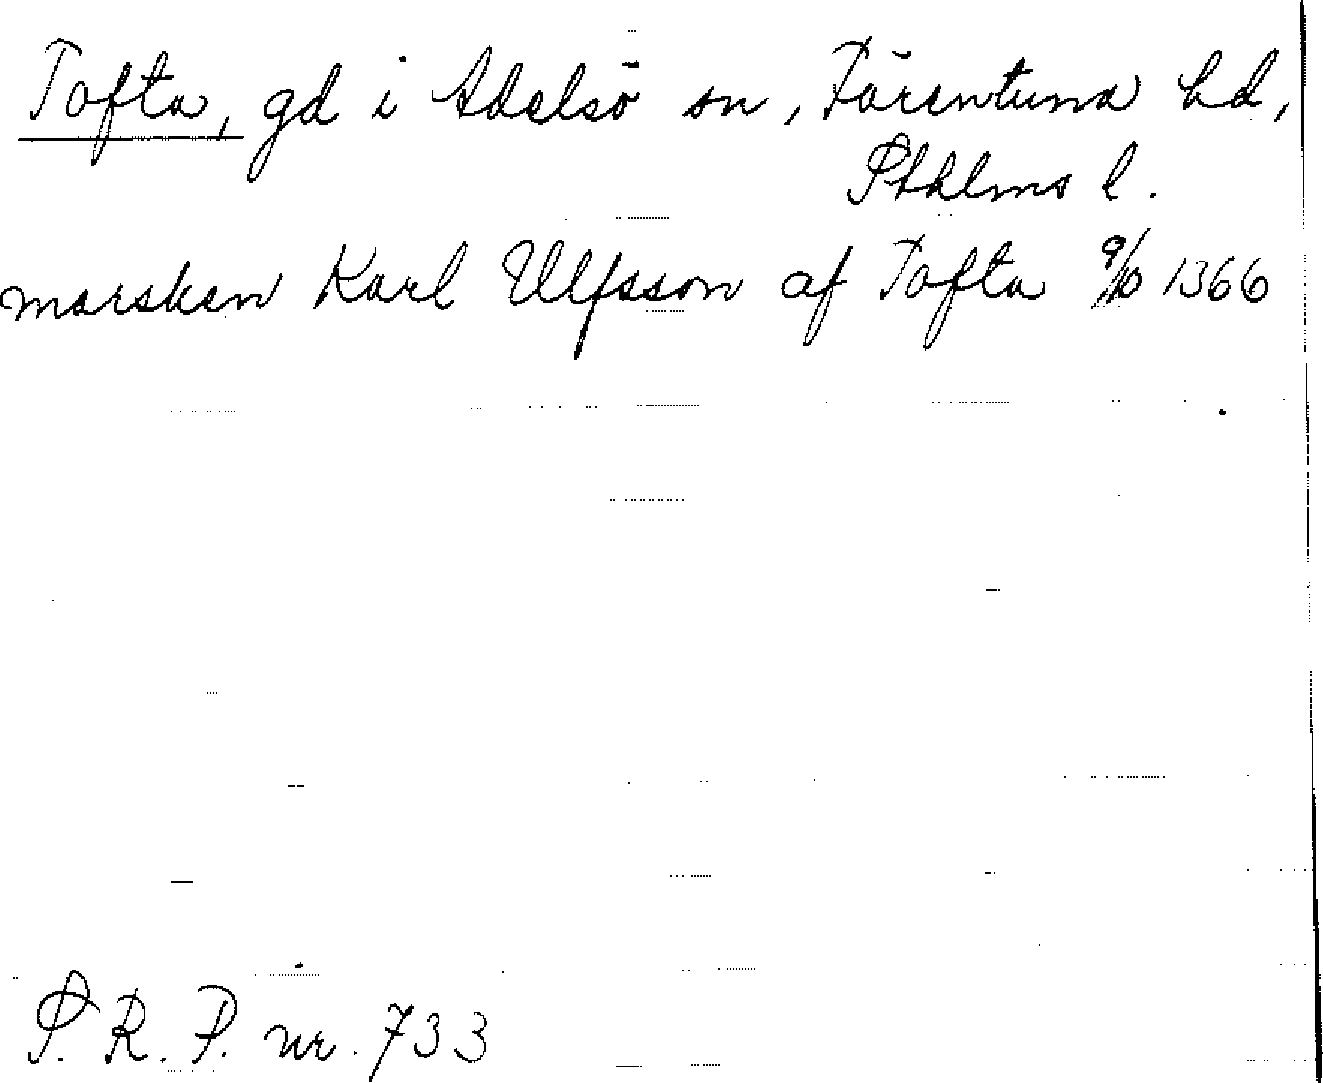 Tofta, gd i Adelsö sn, Färentuna hd,
Sthlms l.
marsken Karl Ulfsson af Tofta 9/10 1366
S. R. P. nr. 733